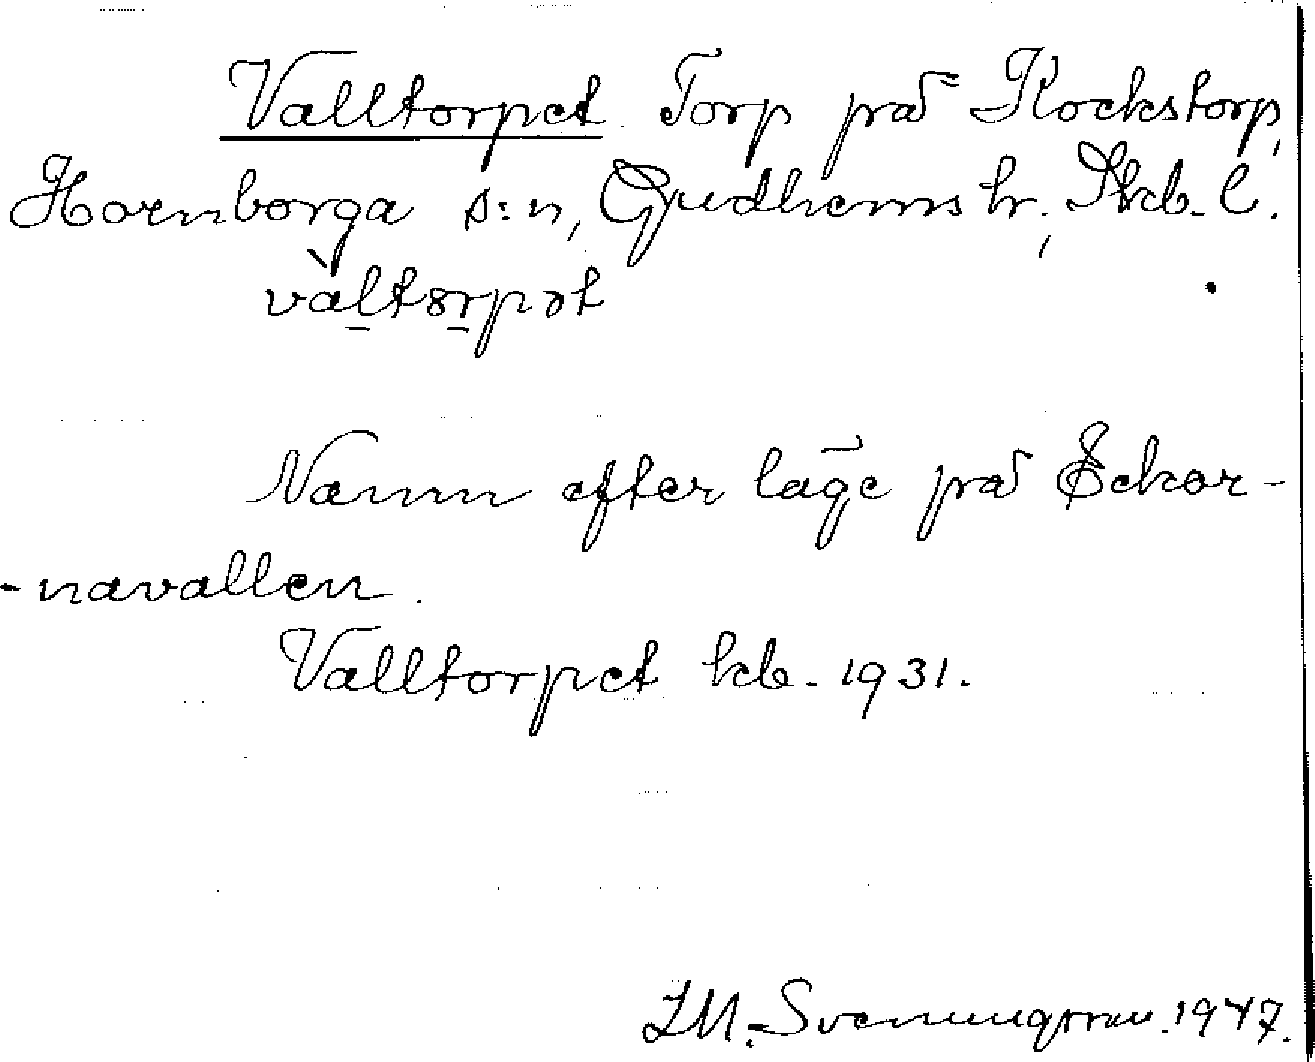 Valltorpet Torp på Rockstorp,
Hornborga s:n, Gudhems hr, Skb. l.
vàltɤrpət
Namn efter läge på Eckor-
-navallen.
Valltorpet kb. 1931.
I.M. Svenungsson. 1947.